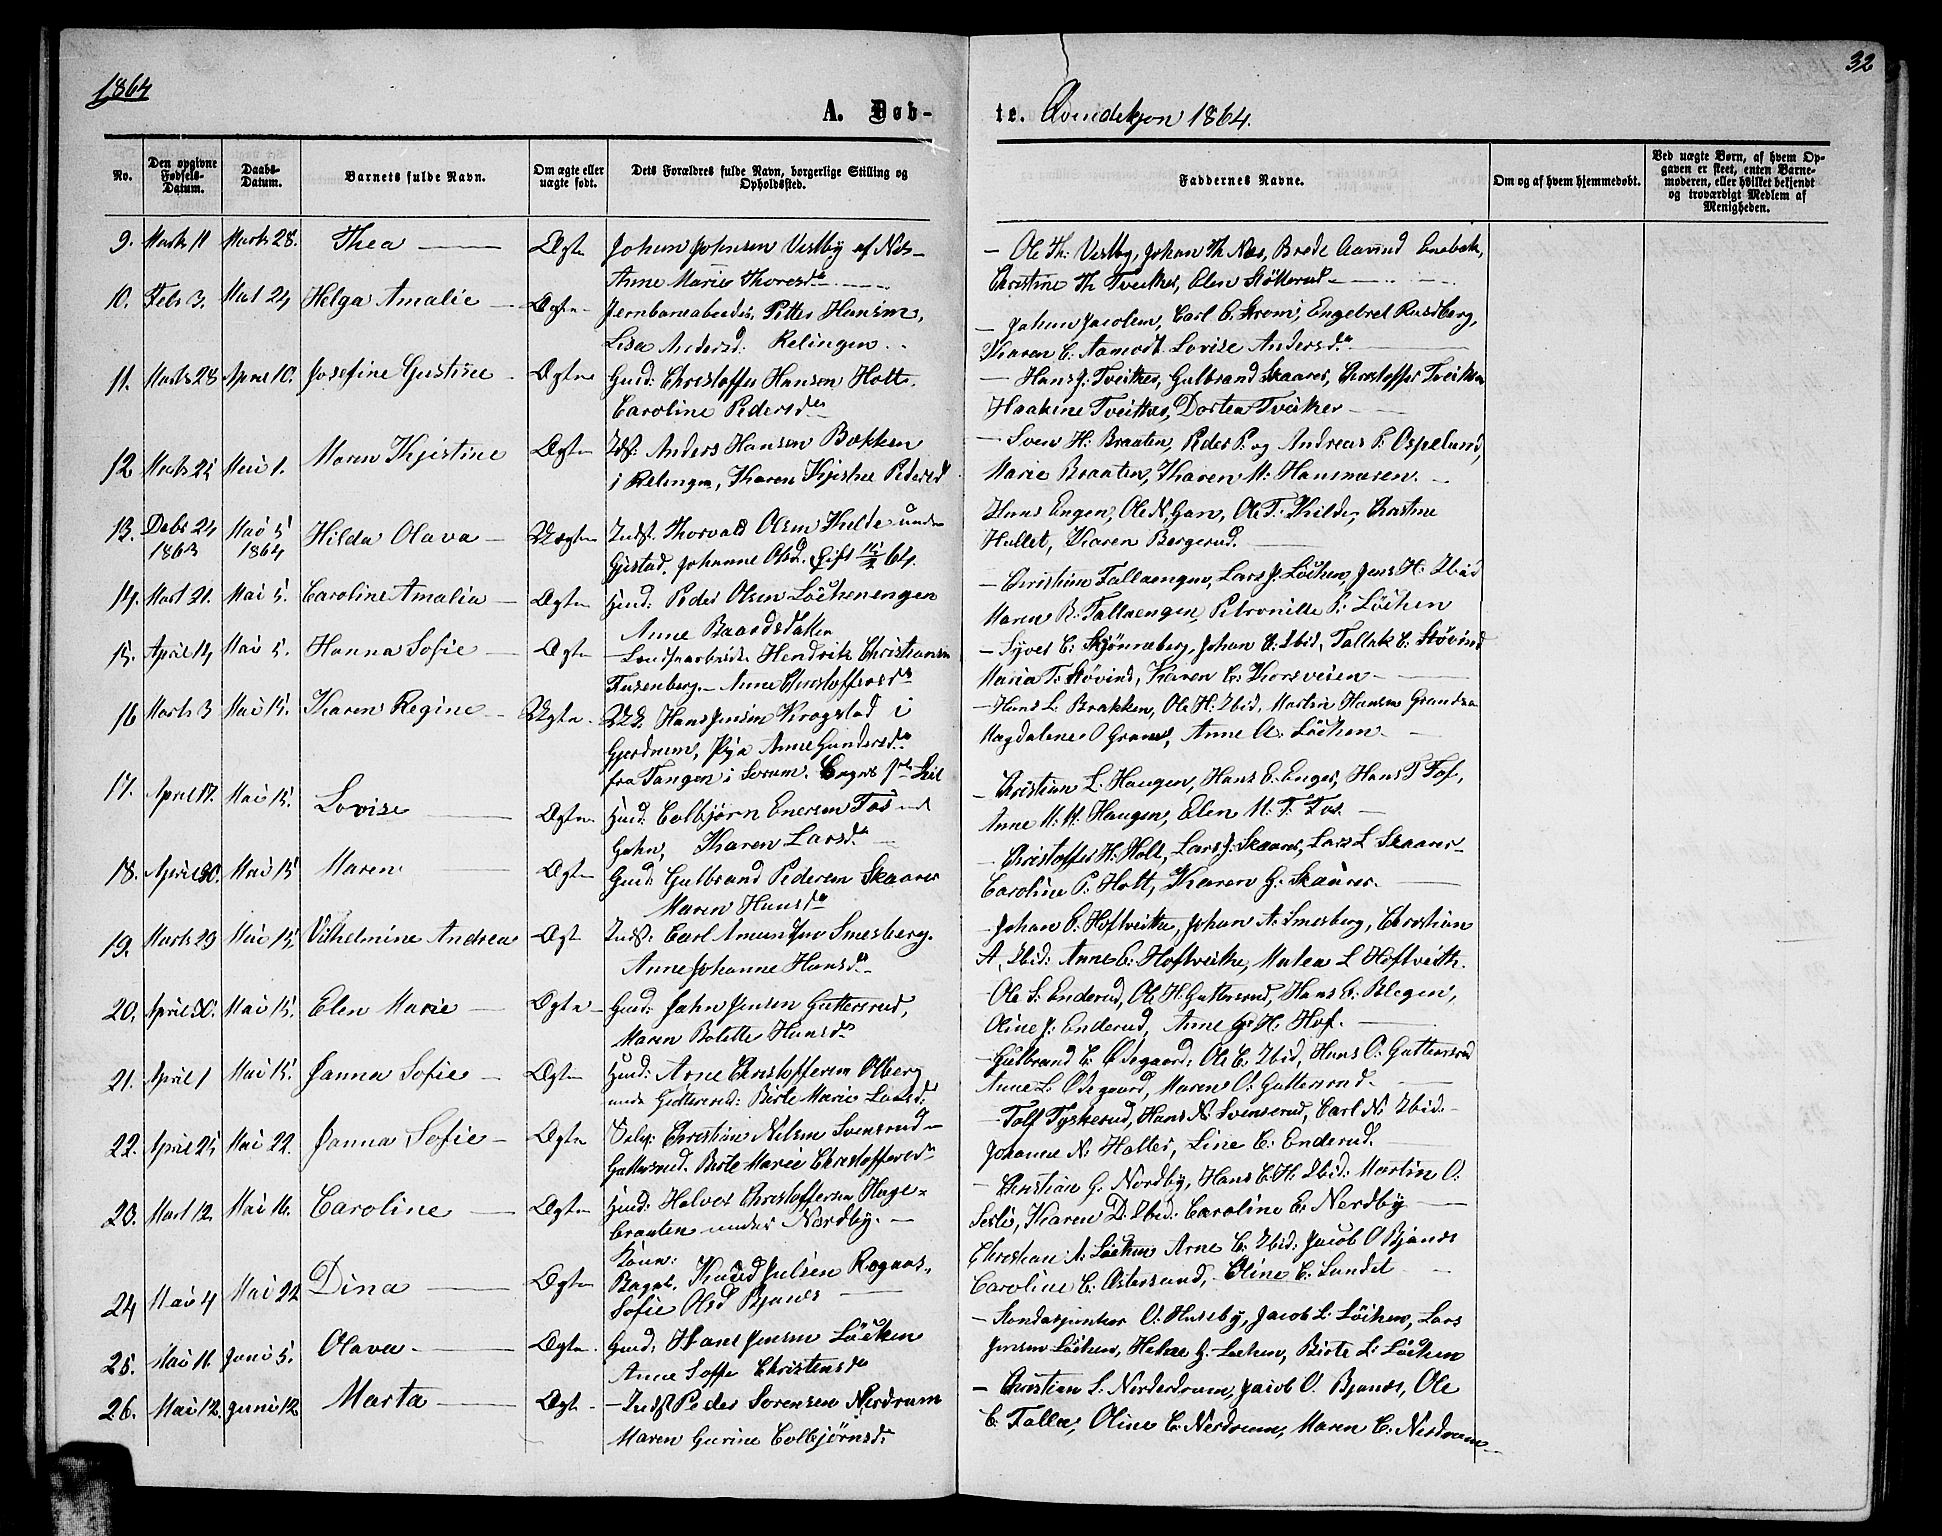 1864
32
A. Døb-
te. Qvindekjøn 1864.
No.
Den opgivne Fødsels-Datum.
Daabs-Datum.
Barnets fulde Navn.
Om ægte eller uægte født.
Dets Forældres fulde Navn, borgerlige Stilling og Opholdssted.
Faddernes Navne.
Om og af hvem hjemmedøbt.
Ved uægte Børn, af hvem Opgaven er skeet, enten Barnemoderen, eller hvilket bekjendt og troværdigt Medlem af Menigheden.
9. Marts 11 Marts 28. Thea Ægte Johan Johnsen Vestby af Næs
Anne Marie Thoresd.
Ole Th. Vestby, Johan Th Næs, Brede Aamod
Christine Th Tveiter, Elen Støtterud
10. Feb 3. Helga Amalie Ægte Jernbanearbeider Petter Hansen,
Lisa Andersd. Relingen
Johan Jacobsen, Carl C. Strøm, Engebret Rusdberg,
Karen C. Aamodt Lovise Andersd.
11. Marts 28 April 10. Josefine Gustine Ægte Gmd. Christoffer Hansen Holt.
Caroline Pedersd.
Hans J. Tveiter, Gulbrand Skaarer, Christoffer Tveiter
Haakine Tveiter, Dortea Tveiter
12 Marts 25 Mai 1. Maren Kjistine Ægte Idst. Anders Hansen Bækken
i Relingen, Karen Kjistine Pedersd
Sven H. Braaten, Peder P. og Andreas P. Ospelund,
Marie Braaten, Karen M. Hansmaren.
13. Debr 24 1863 Mai 5 1864 Hilda Olava Uægte Indst. Thorvald Olsen Kilde under
Gjestad. Johanne Olsd. Gift 64.
Hans Engen, Ole N. Gan, Ole T. Kilde, Christine
Hullet, Karen Bergerud.
14. Mart 21. Mai 5. Caroline Amalia Ægte Hmd. Peder Olsen Löckenengen
Anne Baardsdatter
Christian Tallaengen, Lars J. Löcken, Jens H. Ibid
Maren R. Tallaengen, Petronille P. Löcken
15. April 14 Mai 5. Hanna Sofie Ægte Hendrik Christiansen
Fusenberg. Anne Christoffersd.
Syver C. Skjønneberg, Johan C. Ibid, Tallak C. Støvind
Maria T. Støvind, Karen C. Korsveien
16 Marts 3 Mai 15. Karen Regine Uægte Hans Jensen Krogstad i
Gjerdrum, Pige Anne Gundersd.
fra Tangen i Sørum.
Hans L. Brakken, Ole H. Ibid, Martin Hansen
Magdalene O Grane, Anne A. Löcken
17. April 17. Mai 15. Lovise Ægte Hmd. Colbjørn Enersen Tos
Gahn, Karen Larsd.
Christian L. Haugen, Hans E. Enger, Hans P Tos,
Anne M. H. Haugen, Elen M. T. Tos.
18. April 30. Mai 15 Maren Ægte Gmd. Gulbrand Pedersen Skaarer
Maren Hansd.
Christoffer H. Holt, Lars J. Skaarer, Lars L Skaarer
Caroline P. Holt, Karen G. Skaarer.
19. Marts 29 Mai 15. Vilhelmine Andrea Ægte Indst. Carl Smesberg.
Anne Johanne Hansd.
Johan E. Hoftveite, Johan A. Smesberg, Christian
A. Ibid. Anne C. Hoftveite, Malea L Hoftveith.
20. April 30. Mai 15. Elen Marie Ægte Gmd. John Jensen Guttersrud,
Maren Bolette Hansd.
Ole S. Enderud, Ole H. Guttersrud, Hans C. Blegen,
Oline J. Enderud, Anne H. Hof.
21. April 1 Mai 15. Janna Sofie Ægte Hmd. Arne Christoffersen Olberg
unde Guttersrud. Birte Marie Larsd.
Gulbrand C. Ødegaard, Ole C. Ibid, Hans O. Guttersrud
Anne L. Ødegaard, Maren O. Guttersrud.
22. April 25 Mai 22. Janna Sofie Ægte Selv. Christian Nilsen Svensrud
Guttersrud. Birte Marie Christoffersd.
Tolf Tyskerud, Hans N. Svenserud, Carl N. Ibid.
Johanne N. Halter, Line C. Enderud.
23. Mart 12. Mai 16. Caroline Ægte Hmd. Halvor Christoffersen Hage-
braaten under Nordby.
Christian G. Nordby, Hans C. H. Ibid. Martin O.
Karen D. Ibid. Caroline E. Nordby
24 Mai 4 Mai 22 Dina Ægte Knud Julsen Rognaas,
Sofie Olsd Bjanes
Christian A. Löcken Arne C. Ibid. Jacob O Bjanes
Caroline C. Østersund, Oline C. Sundet
25. Mai 11. Juni 5. Olava Ægte. Gmd. Hans Jensen Löcken
Anne Soffe Christensd.
O. Huseby, Jacob L. Löcken, Lars
Jensen Löcken, Helene G. Löcken, Birte L. Löcken
26. Mai 12. Juni 12 Marta Ægte Indst Peder Sørensen Nerdrum
Maren Gurine Colbjørnsd.
Christian S. Nerdrum, Jacob O. Bjanes, Ole
C. Tallæ, Oline C. Nerdrum, Maren C. Nerdrum